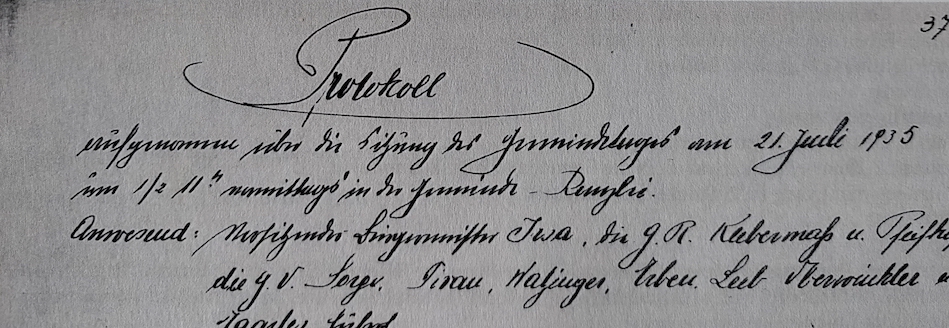 37
Protokoll
aufgenommen über die Sitzung des Gemeindetages am 21. Juli 1935
um 1/2 11h vormittags in der Gemeinde-Kanzlei.
Anwesend: Vorsitzender Bürgermeister Iwa, die G.R. Klebermaß u.
die G.V. Sorge, Tirau, Watzinger, Erben, Leeb Oberwinkler